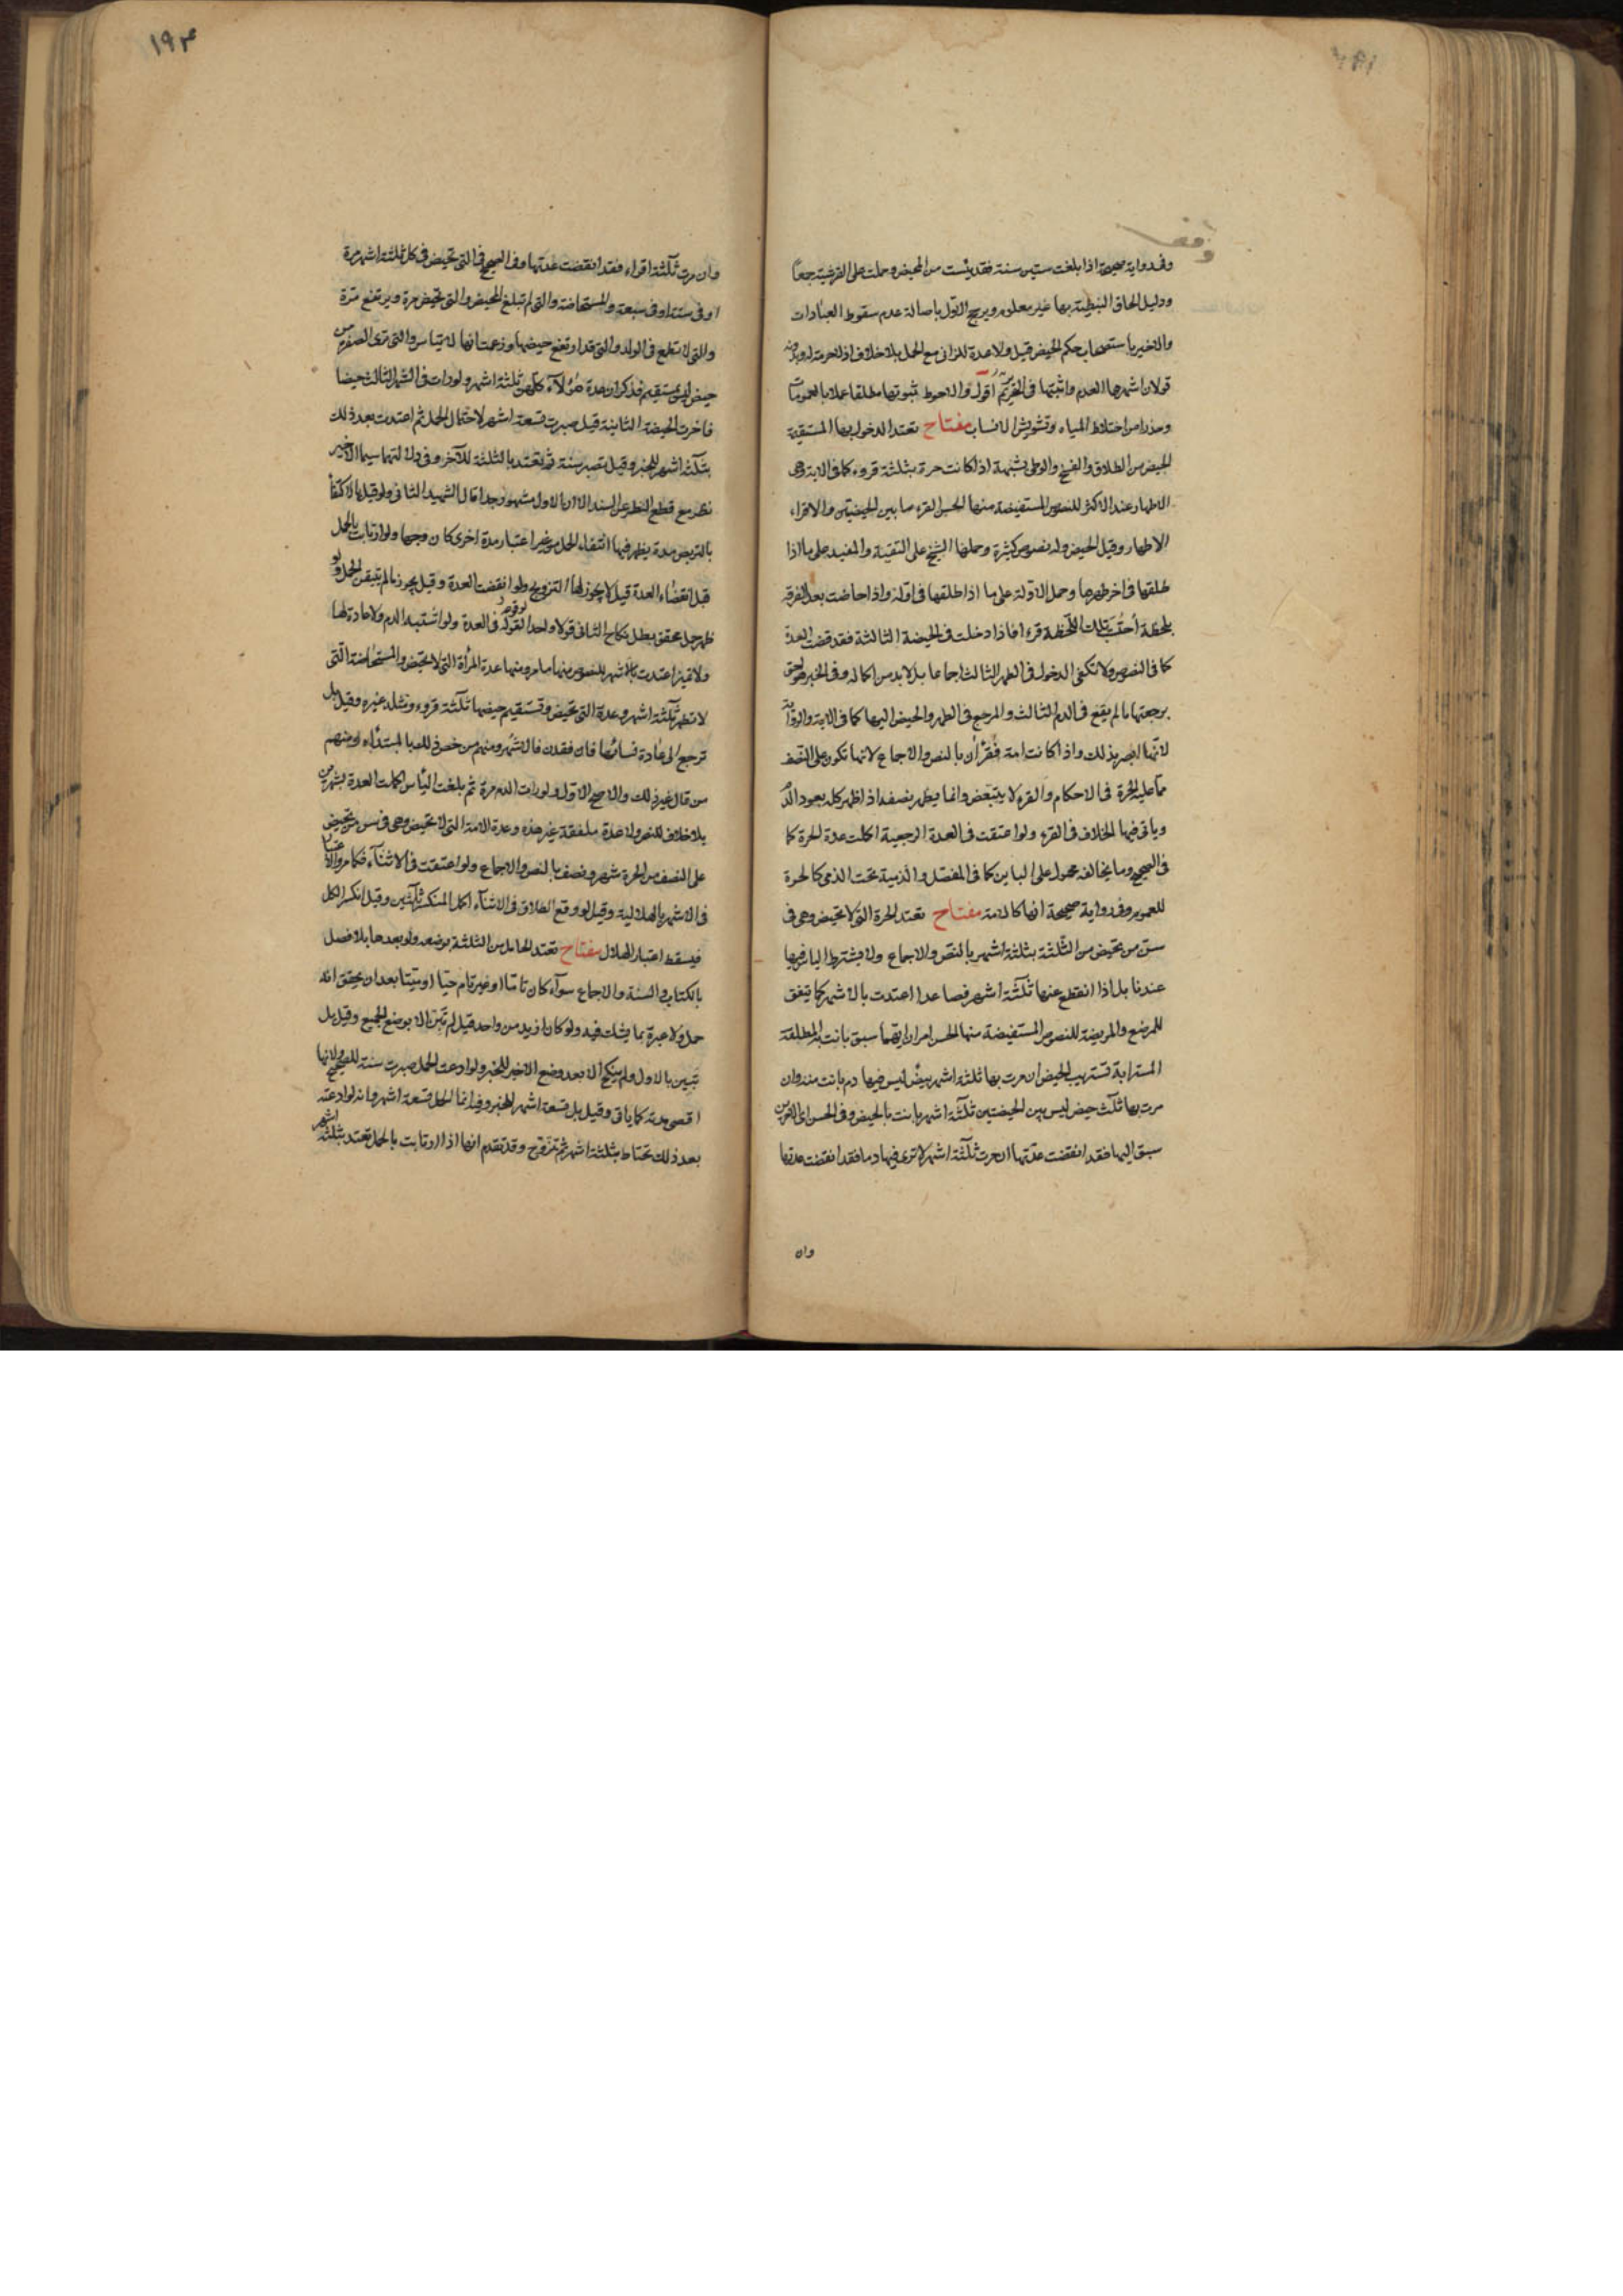 وقف
وفي رواية صحيحة اذا بلغت ستين سنة فقد يئست من المحيض وحملت على القرشية جمعا
ودليل الحاق النبطية بها غير معلوم ويرجح الاول باصالة عدم سقوط العبادات
والاخير باستصحاب حكم الحيض قيل ولا عدة للزاني مع الحمل بلا خلاف اذ لا حرمة له وبدونه
قولان اشهرها العدم واثبتها في التحرير اقول والاحوط ثبوتها مطلقا عملا بالعمومات
وحذرا من اختلاط المياه وتشويش الانساب مفتاح تعتد المدخول بها المستقيمة
الحيض من الطلاق والفسخ والوطي بشبهة اذا كانت حرة بثلثة قروء كما في الاية وهي
الاطهار عند الاكثر للنصوص المستفيضة منها الحسن القرء ما بين الحيضتين والاقراء
الاطهار وقيل الحيض وله نصوص كثيرة وحملها الشيخ على التقية والمفيد على ما اذا
طلقها في اخر طهرها وحمل الاولة على ما اذا طلقها في اوله واذا حاضت بعد الفرقة
بلحظة احتسب تلك اللحظة قرءا فاذا دخلت في الحيضة الثالثة فقد قضت العدة
كما في النصوص ولا تكفي الدخول في الطهر الثالث اجماعا بل لا بد من اكماله وفي الخبر هو احق
برجعتها ما لم يقع في الدم الثالث والمرجع في الطهر والحيض اليها كما في الاية والرواية
لانها ابصر بذلك واذا كانت امة فقرأن بالنص والاجماع لانها تكون على النصف
مما على الحرة في الاحكام والقرء لا يتبعض وانما يظهر نصفه اذا ظهر كله بعود الدم
وياتي فيها الخلاف في القرء ولو اعتقت في العدة الرجعية اكملت عدة الحرة كما
في الصحيح وما يخالفه محمول على الباين كما في المفصل والذمية تحت الذمي كالحرة
للعموم وفي رواية صحيحة انها كالامة مفتاح تعتد الحرة التي لا تحيض وهي في
سن من تحيض من الثلثة بثلثة اشهر بالنص والاجماع ولا يشترط الياس فيها
عندنا بل اذا انقطع عنها ثلثة اشهر فصاعدا اعتدت بالاشهر كما يتفق
للمرضع والمريضة للنصوص المستفيضة منها الحسن امران ايهما سبق بانت به المطلقة
المسترابة تستريب الحيض ان مرت بها ثلثة اشهر بيض ليس فيها دم بانت منه وان
مرت بها ثلث حيض ليس بين الحيضتين ثلثة اشهر بانت بالحيض وفي الحسن اي الامرين
سبق اليها فقد انقضت عدتها ان مرت ثلثة اشهر لا ترى فيها دما فقد انقضت عدتها
وان
١٩٣
وان مرت ثلثة اقراء فقد انقضت عدتها وفي الصحيح في التي تحيض في كل ثلثة اشهر مرة
او في ستة او في سبعة والمستحاضة والتي لم تبلغ المحيض والتي تحيض مرة ويرتفع مرة
والتي لا تطمع في الولد والتي قد ارتفع حيضها وزعمت انها لم تيأس والتي ترى الصفرة من
حيض ليس بمستقيم فذكر ان عدة هؤلاء كلهن ثلثة اشهر ولو رات في الشهر الثالث حيضا
فاخرت الحيضة الثانية قيل صبرت تسعة اشهر لاحتمال الحمل ثم اعتدت بعد ذلك
بثلثة اشهر للخبر وقيل تصبر سنة ثم تعتد بالثلثة للآخر وفي دلالتهما سيما الاخير
نظر مع قطع النظر عن السند الا ان الاول مشهور جدا قال الشهيد الثاني ولو قيل بالاكتفاء
بالتربص مدة يظهر فيها انتفاء الحمل من غير اعتبار مدة اخرى كان وجها ولو ارتابت بالحمل
قبل انقضاء العدة قيل لا يجوز لها التزويج ولو انقضت العدة وقيل يجوز ما لم تتيقن الحمل ولو
ظهر حمل محقق بطل نكاح الثاني قولا واحدا لوقوعه في العدة ولو اشتبه الدم ولا عادة لها
ولا تميز اعتدت بالاشهر للنصوص منها ما مر ومنها عدة المرأة التي لا تحيض والمستحاضة التي
لا تطهر ثلثة اشهر وعدة التي تحيض وتستقيم حيضها ثلثة قروء ومثله غيره وقيل بل
ترجع الى عادة نسائها فان فقدن فالاشهر ومنهم من خص ذلك بالمبتداه ومنهم
من قال غير ذلك والاصح الاول ولو رات الدم مرة ثم بلغت الياس اكملت العدة بشهرين
بلا خلاف للنص ولا عدة ملفقة غير هذه وعدة الامة التي لا تحيض وهي في سن من تحيض
على النصف من الحرة شهر ونصف بالنص والاجماع ولو اعتقت في الاثناء فكما مر والاعتبار
في الاشهر بالهلالية وقيل لو وقع الطلاق في الاثناء اكمل المنكسر ثلثين وقيل انكسر الكل
فيسقط اعتبار الهلال مفتاح تعتد الحامل من الثلثة بوضعه ولو بعدها بلا فصل
بالكتاب والسنة والاجماع سواء كان تاما او غير تام حيا او ميتا بعد ان يتحقق انه
حمل ولا عبرة بما يشك فيه ولو كان ازيد من واحد قيل لم تبن الا بوضع الجميع وقيل بل
تبين بالاول ولم ينكح الا بعد وضع الاخير للخبر ولو ادعت الحمل صبرت سنة للصحيح ولانها
اقصى مدته كما ياتي وقيل بل تسعة اشهر للخبر وفيه انما الحمل تسعة اشهر وانه لو ادعته
بعد ذلك تحتاط بثلثة اشهر ثم تزوج وقد تقدم انها اذا ارتابت بالحمل تعتد بثلثة اشهر